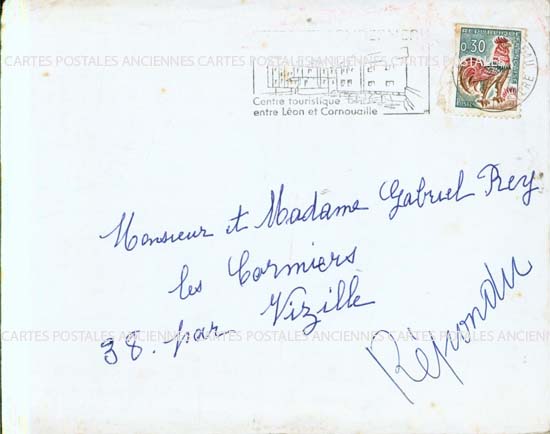 RÉPUBLIQUE
0,30
CARTES POSTALES ANCIENNES CARTES POSTALES ANCIENNES CARTES POSTALES
Centre touristique
entre Léon et Cornouaille
Monsieur et Madame Gabriel Rey
les Cormiers
Vizille
CARTES POSTALES ANCIENNES CARTES POSTALES ANCIENNES CARTES POSTALES
38. par
Répondu